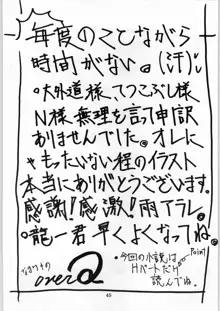 毎度のことながら
時間がない。(汗)
。大外道様、てつこぶし様
N様、無理を言って申訳
ありませんでした。オレに
ゃもったいない程のイラスト
本当にありがとうございます。
感謝!感激!雨アラレ。
。龍一君早くよくなってね。
Point!
。今回の小説は
Hパートだけ
読んでね。
over
45